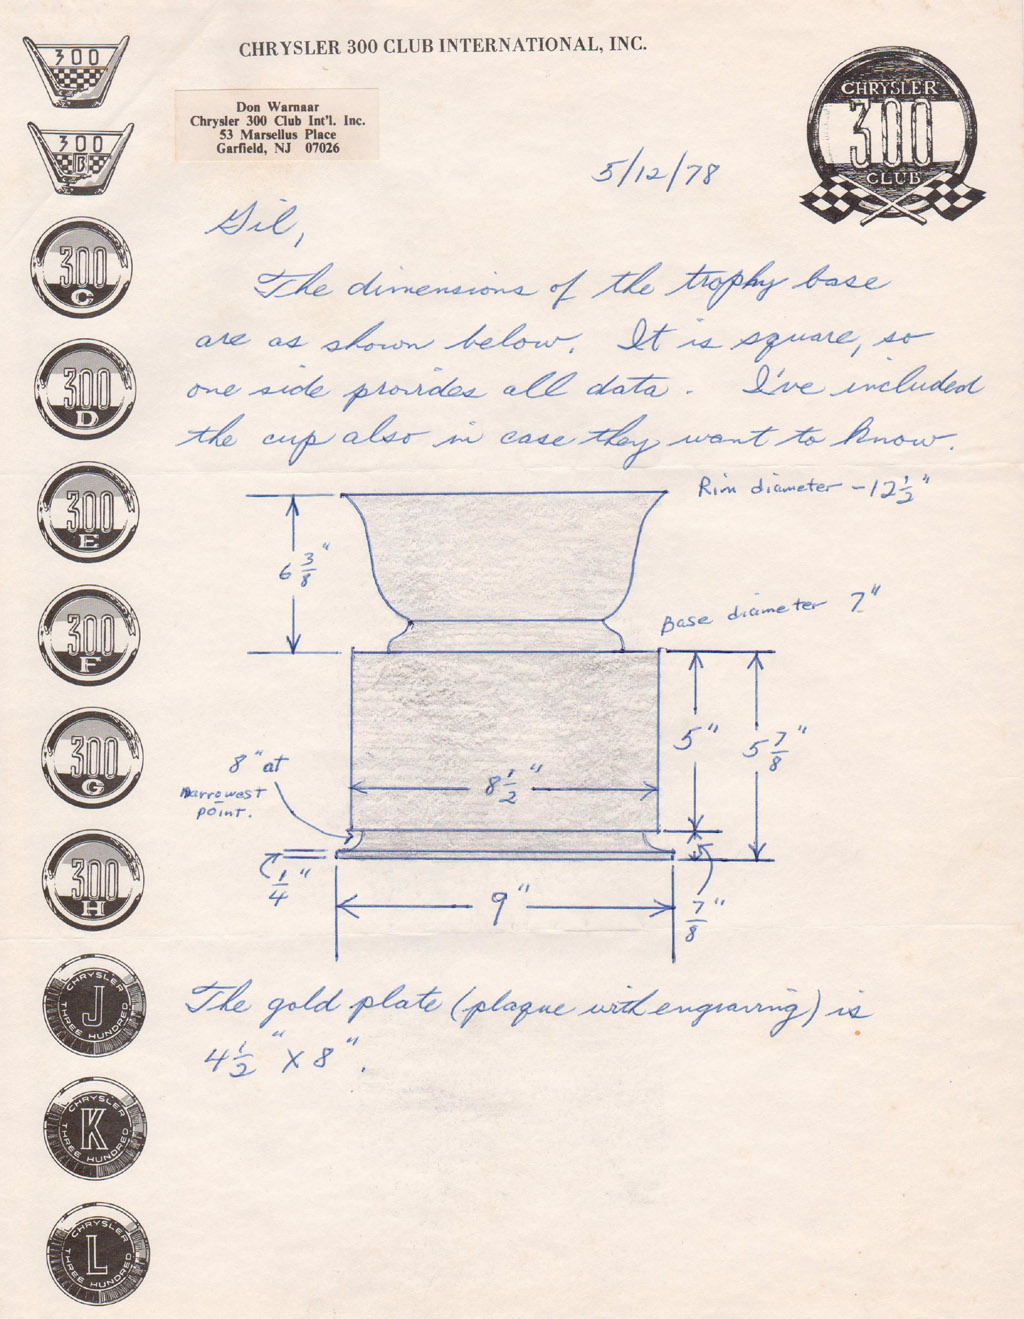 CHRYSLER 300 CLUB INTERNATIONAL, INC.
Don Warnaar
Chrysler 300 Club Int'l. Inc.
53 Marsellus Place
Garfield, NJ 07026
CHRYSLER
300
CLUB
5/12/78
Gil,
The dimensions of the trophy base
are as shown below. It is square, so
one side provides all data. I've included
the cup also in case they want to know.
Rim diameter - 12 1/2"
6 3/8"
Base diameter 7"
5"
5 7/8"
8" at
narrowest
point.
8 1/2"
1/4"
9"
7/8"
The gold plate (plaque with engraving) is
4 1/2" X 8".
300
300
B
300
C
300
D
300
E
300
F
300
G
300
H
CHRYSLER
J
THREE HUNDRED
CHRYSLER
K
THREE HUNDRED
CHRYSLER
L
THREE HUNDRED